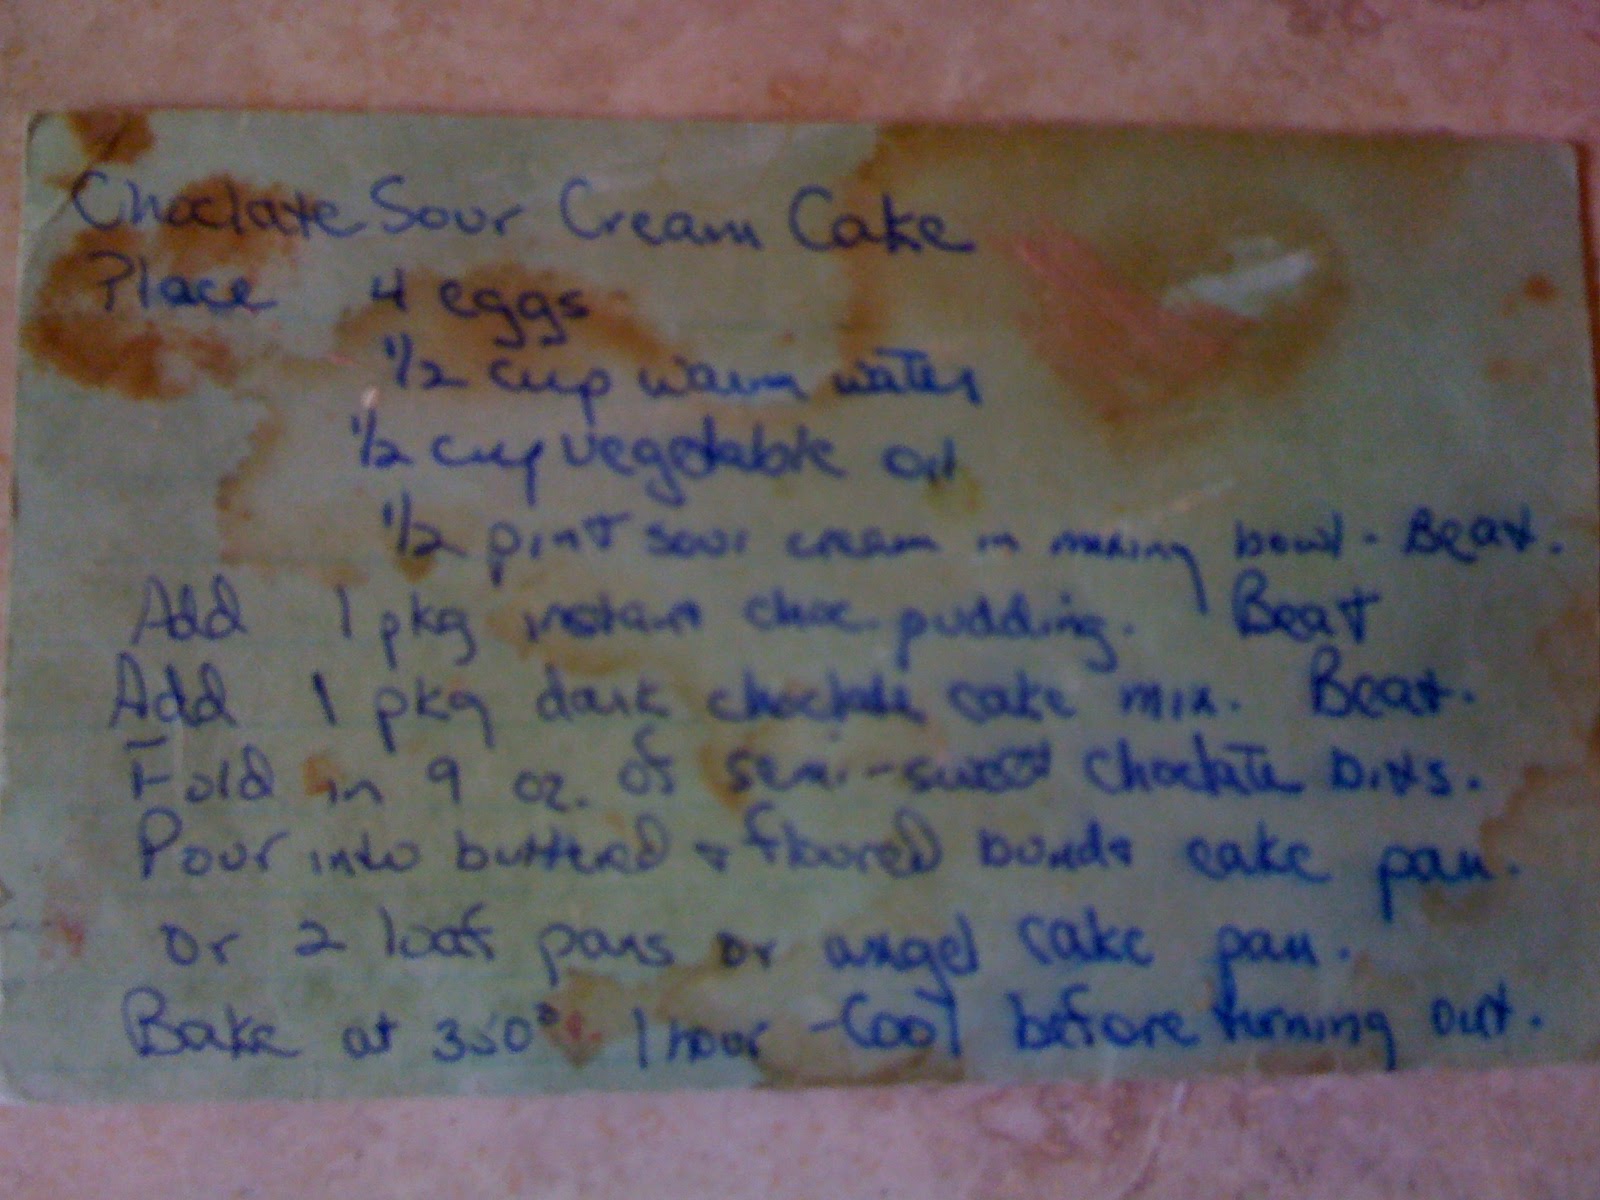 Choclate Sour Cream Cake
Place 4 eggs
1/2 cup warm water
1/2 cup vegetable oil
1/2 pint sour cream in mixing bowl - Beat.
Add 1 pkg instant choc pudding. Beat
Add 1 pkg dark choclate cake mix. Beat.
Fold in 9 oz. of semi-sweet choclate bits.
Pour into buttered & floured bundt cake pan.
or 2 loaf pans or angel cake pan.
Bake at 350° 1 hour - Cool before turning out.